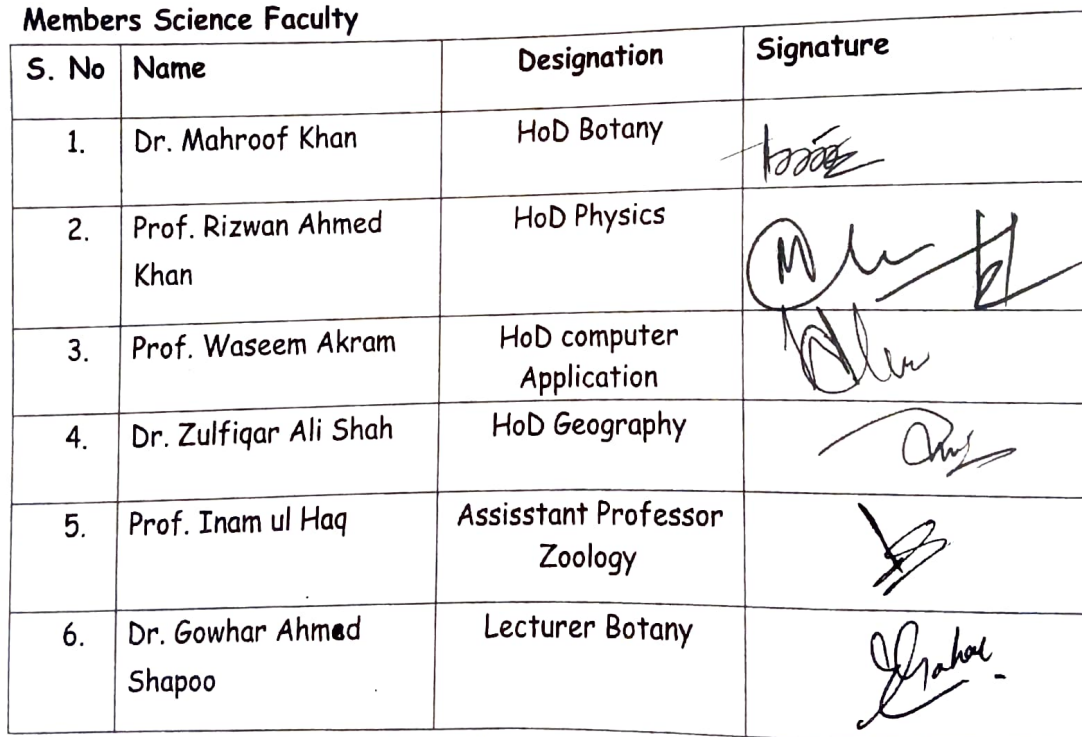 Members Science Faculty
S. No Name Designation Signature
1. Dr. Mahroof Khan HoD Botany
2. Prof. Rizwan Ahmed HoD Physics
Khan
3. Prof. Waseem Akram HoD computer
Application
4. Dr. Zulfiqar Ali Shah HoD Geography
5. Prof. Inam ul Haq Assisstant Professor
Zoology
6. Dr. Gowhar Ahmed Lecturer Botany
Shapoo